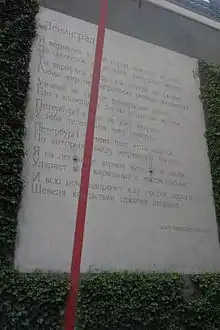 Ленинград
Я вернулся в мой город
До прожилок, до детских
Ты вернулся сюда, так глотай же скорей
Рыбий жир ленинградских речных
Узнавай же скорее декабрьский
Где к
Петербург! я еще не хочу
У тебя телефонов моих
Петербург! У меня еще есть адреса
По которым найду мертвецов голоса
Я на лестнице черной живу, и в висок
Ударяет мне вырванный с мясом звонок
И всю ночь напролет жду гостей дорогих
Шевеля кандалами цепочек дверных